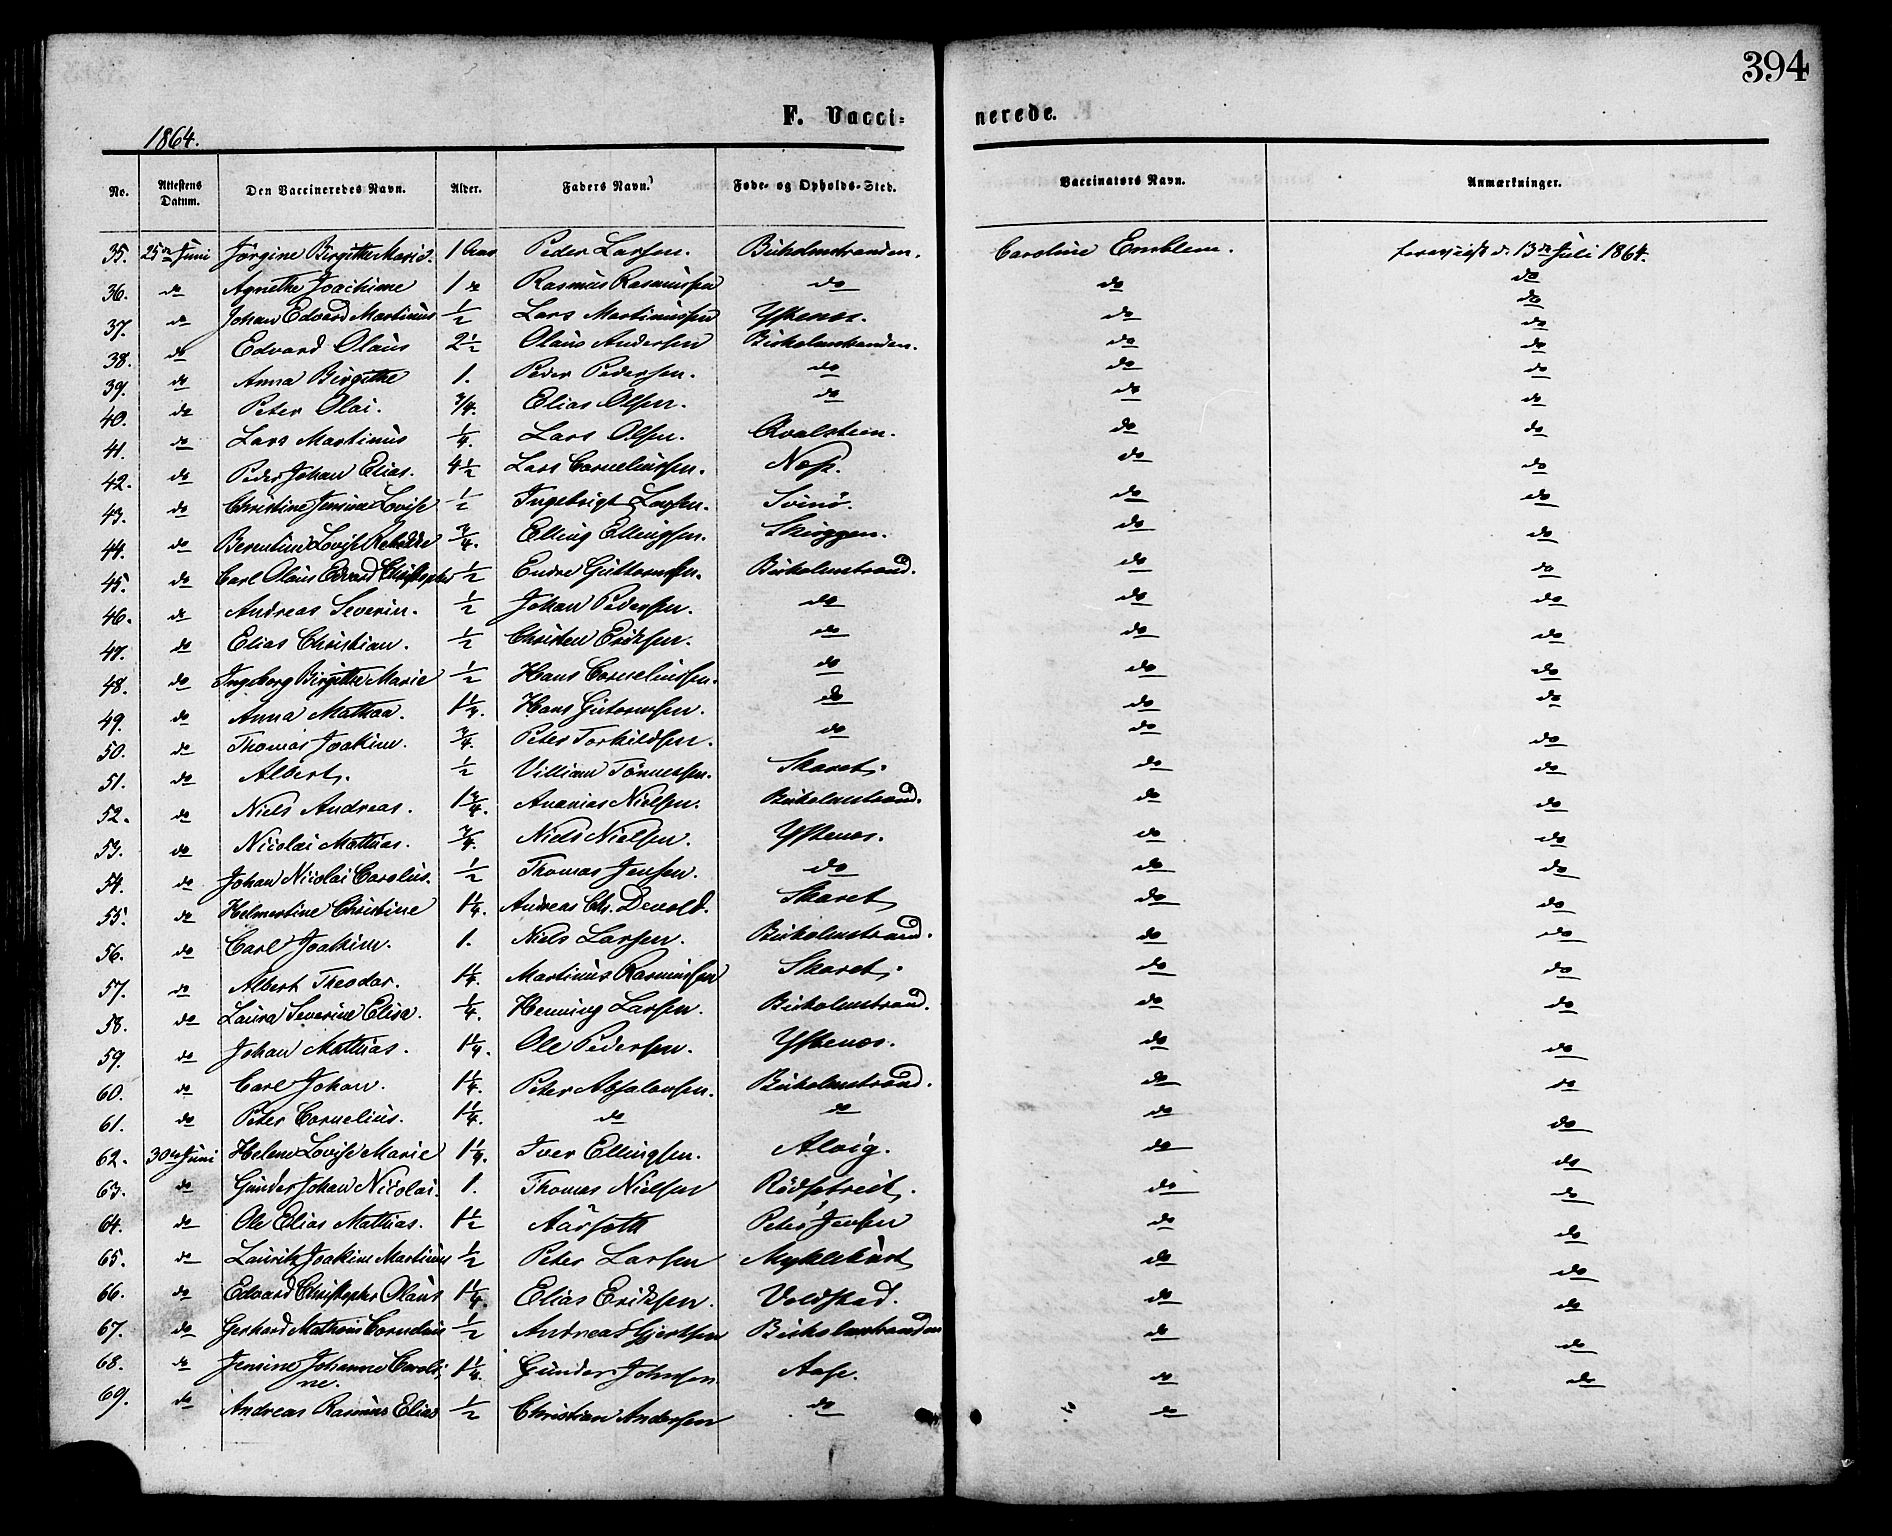 394
F. Vacci- nerede.
1864.
No. Attestens Datum. Den Vaccineredes Navn. Alder. Faders Navn. Føde- og Opholds-Sted. Vaccinators Navn. Anmærkninger.
35. 25de Juni Jørgine Birgitte Marie. 1 Aar Peder Larsen. Buholmstranden. Caroline Emblem. d. 13de Juli 1864.
36. do Agnethe Joachime 1 do Rasmus Rasmussen do do do
37. do Johan Edvard Martinus 1/2 Lars Martinussen Ystenæs. do do
38. do Edvard Olaus 2 1/2 Olaus Andersen Buholmstranden. do do
39. do Anna Birgitte 1. Peder Pedersen. do do do
40. do Peter Olai. 3/4. Elias Olsen. do do do
41. do Lars Martinus 1/4. Lars Olsen. Qvalstein. do do
42. do Peder Johan Elias. 4 1/2 Lars Corneliussen. do do
43. do Christine Jensine Lovise 1/2 Ingebrigt Larsen. Svinø. do do
44. do Berentine Lovise 3/4. Elling Ellingsen. Skirggen. do do
45. do Carl Olaus Edvard Christopher 1/2 Endre Guttormsen. Buholmstrand. do do
46. do Andreas Severin. 1/2 Johan Pedersen. do do do
47. do Elias Christian. 1/2 Christen Eriksen. do do do
48. do Ingeborg Birgitte Marie 1/2 Hans Corneliussen. do do do
49. do Anna Mathea. 1 1/4. Hans Gutormsen. do do do
50. do Thomas Joakim. 3/4. Peter Torkildsen. do do do
51. do Albert. 1/2 Villiam Tønnessen. Skaret. do do
52. do Niels Andreas. 1 3/4. Ananias Nielsen. Buholmstrand. do do
53. do Nicolai Mathias. 3/4. Niels Nielsen. Ystenæs. do do
54. do Johan Nicolai Carolus. 1/2 Thomas Jensen. do do do
55. do Helmertine Christine 1 1/4. Andreas Chr. Devold. Skaret do do
56. do Carl Joakim. 1. Niels Larsen. Buholmstrand. do do
57. do Albert Theodor. 1 1/4. Martinus Rasmussen Skaret. do do
58. do Laura Severine Elisa. 1/4. Henning Larsen. Buholmstrand. do do
59. do Johan Mathias. 1 1/4. Ole Pedersen. Ystenæs. do do
60. do Carl Johan. 1 1/4. Peter Absalonsen. Buholmstrand. do do
61. do Peter Cornelius. 1 1/4. do do do do
62. 30te Juni Helene Lovise Marie 1 1/4. Iver Ellingsen. Alvig. do do
63. do Gunder Johan Nicolai. 1. Thomas Nielsen Rødsetreit. do do
64. do Ole Elias Mathias. 1 1/2 Aarseth Peter Jensen do do
65. do Lauritz Joakim Martinus 1/2 Peter Larsen Myklebust do do
66. do Edvard Christopher Olaus 1 1/4. Elias Eriksen. Voldstad. do do
67. do Gerhard Mathæus Cornelius 1/2 Andreas Gjertsen Buholmstranden do do
68. do Jensine Johanne Caroline. 1 1/4. Gunder Johnsen. Aase. do do
69. do Andreas Rasmus Elias 1/2 Christian Andersen do do